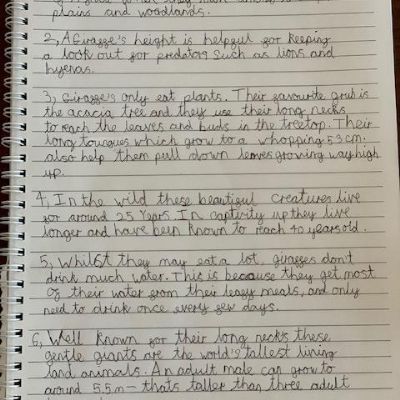 plains and woodlands.
2, A Giraffe's height is helpful for keeping
a look out for predators such as lions and
hyenas.
3, Giraffe's only eat plants. Their favourite grub is
the acacia tree and they use their long necks
to reach the leaves and buds in the treetop. Their
long toungues which grow to a whopping 53cm.
also help them pull down leaves growing way high
up.
4, In the wild these beautiful creatures live
for around 25 years. In captivity up they live
longer and have been known to reach 40 years old.
5, Whilst they may eat a lot, giraffes don't
drink much water. This is because they get most
of their water from their leafy meals, and only
need to drink once every few days.
6, Well known for their long necks these
gentle giants are the world's tallest living
land animals. An adult male can grow to
around 5.5m - thats taller than three adult